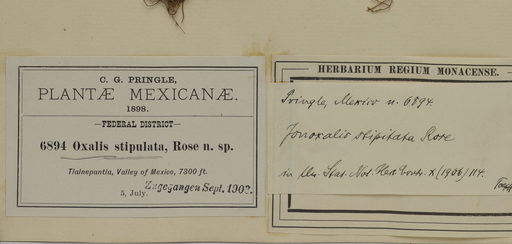 C. G. PRINGLE,
PLANTÆ MEXICANÆ.
1898.
—FEDERAL DISTRICT—
6894 Oxalis stipulata, Rose n. sp.
Tlalnepantla, Valley of Mexico, 7300 ft.
5, July. Zugegangen Sept. 1902.
HERBARIUM REGIUM MONACENSE.
Pringle, Mexico n. 6894.
Jonoxalis stipitata Rose
in Un. Stat. Nat. Herb. Contr. X (1906) 114.